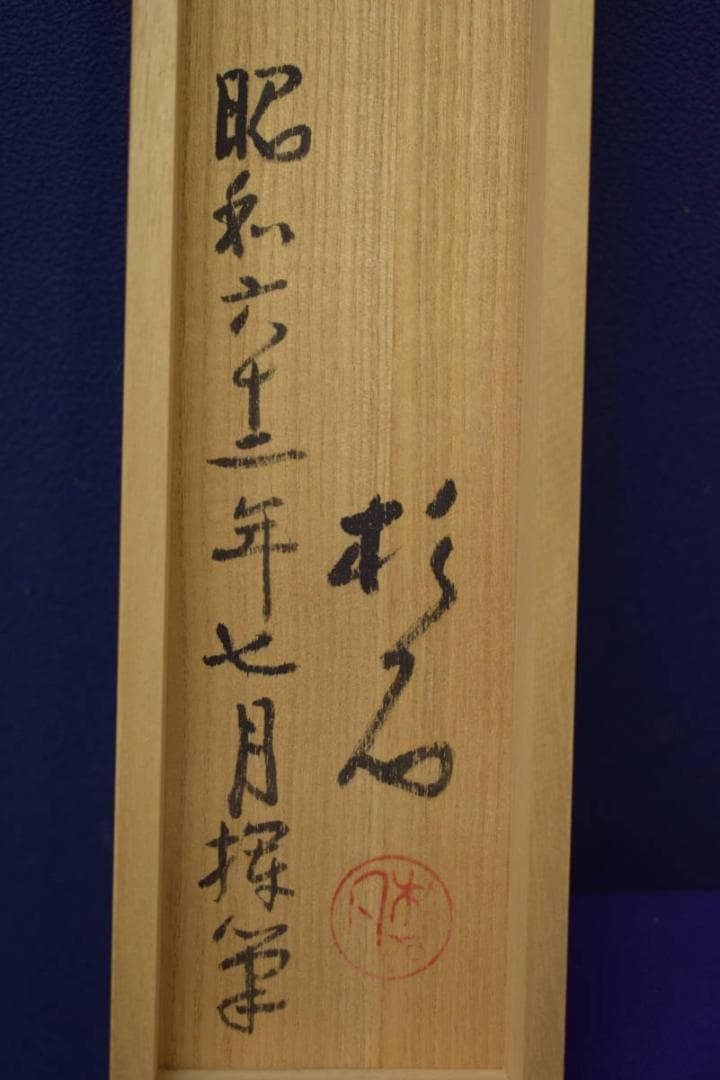 杉石
昭和六十二年七月揮筆